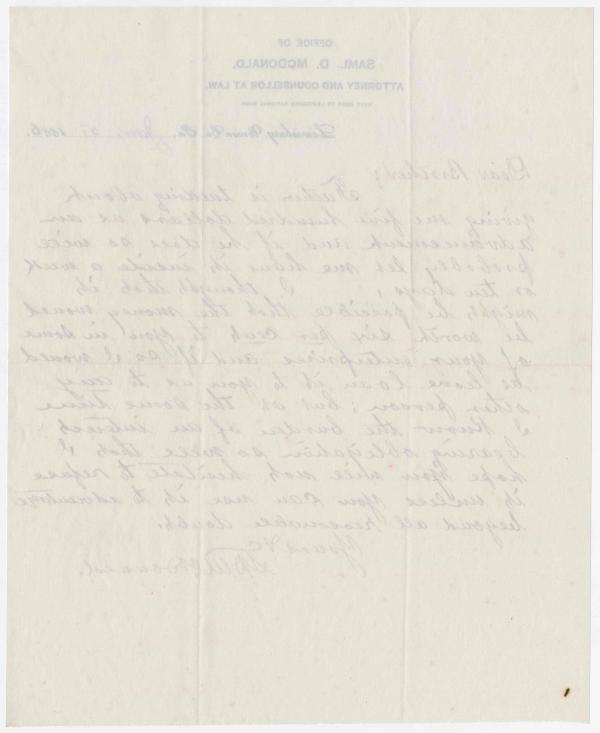 OFFICE OF
SAML. D. MCDONALD,
ATTORNEY AND COUNSELLOR AT LAW.
NEXT DOOR TO LEWISBURG NATIONAL BANK
Lewisburg, Union Co. Pa. Jan. 21 1886.
Dear Brother:
Father is talking about
giving me five hundred dollars as an
advancement and if he does so will
probably let me have it inside a week
or ten days. I thought that it
might be possible that the money would
be worth six per cent to you in some
of your enterprises and if so I would
as leave loan it to you as to any
other person; but at the same time
I know the burden of an interest
bearing obligation so well that I
hope you will not hesitate to refuse
it unless you can use it to advantage
beyond all reasonable doubt.
Yours &c
S. D. McDonald.